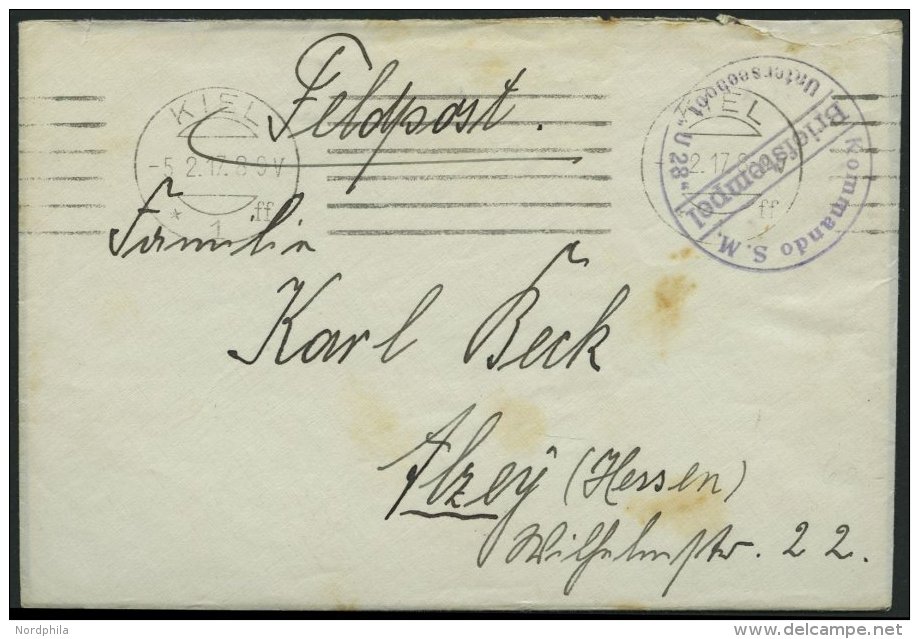 Feldpost.
KIEL
-5.2.17.8-9V
* 1 ff
KIEL
2.17.8
ff
Kommando S. M.
Briefstempel
Unterseeboot „U 28“
Familie
Karl Beck
Alzey (Hessen)
Wilhelmstr. 22.
Nordphila
delcampe.net